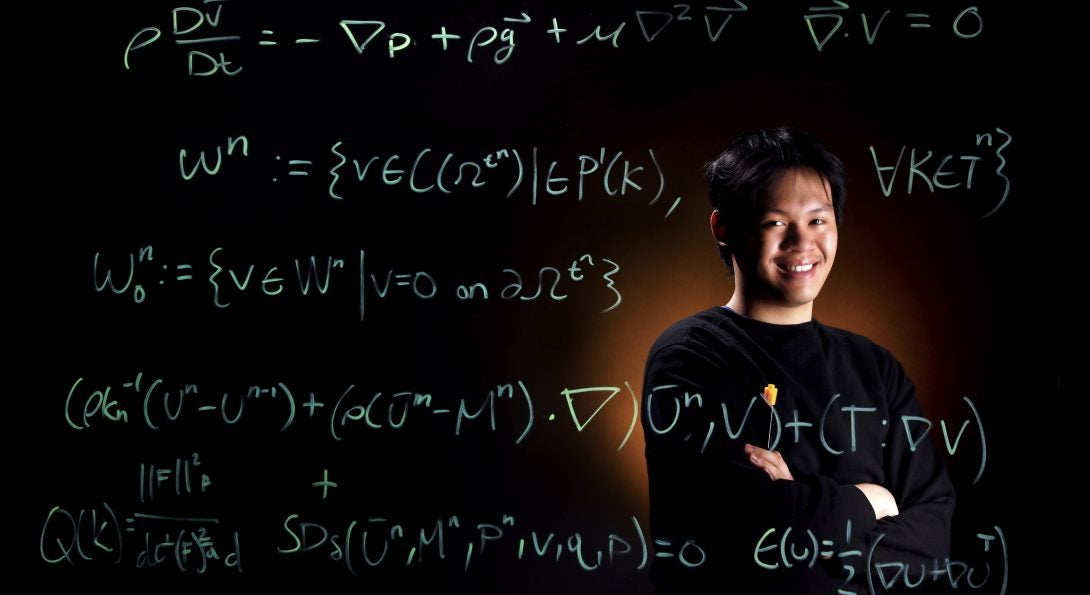 ρ Dv⃗/Dt = - ∇p + ρg⃗ + μ∇²v⃗   ∇⃗·V = 0
Wⁿ := {v∈C(Ω^tⁿ)|∈P'(K), ∀K∈Tⁿ}
W₀ⁿ := {v∈Wⁿ|v=0 on ∂Ω^tⁿ}
(ρkₙ⁻¹(Uⁿ-Uⁿ⁻¹)+(ρ(Ūᵐ-Mⁿ)·∇)Ūⁿ,V)+(T:∇V)
+
Q(k)=||F||²_F / d   SD_δ(Ūⁿ,Mⁿ,Pⁿ,v,q,p)=0   ϵ(u)=1/2(∇U+∇Uᵀ)